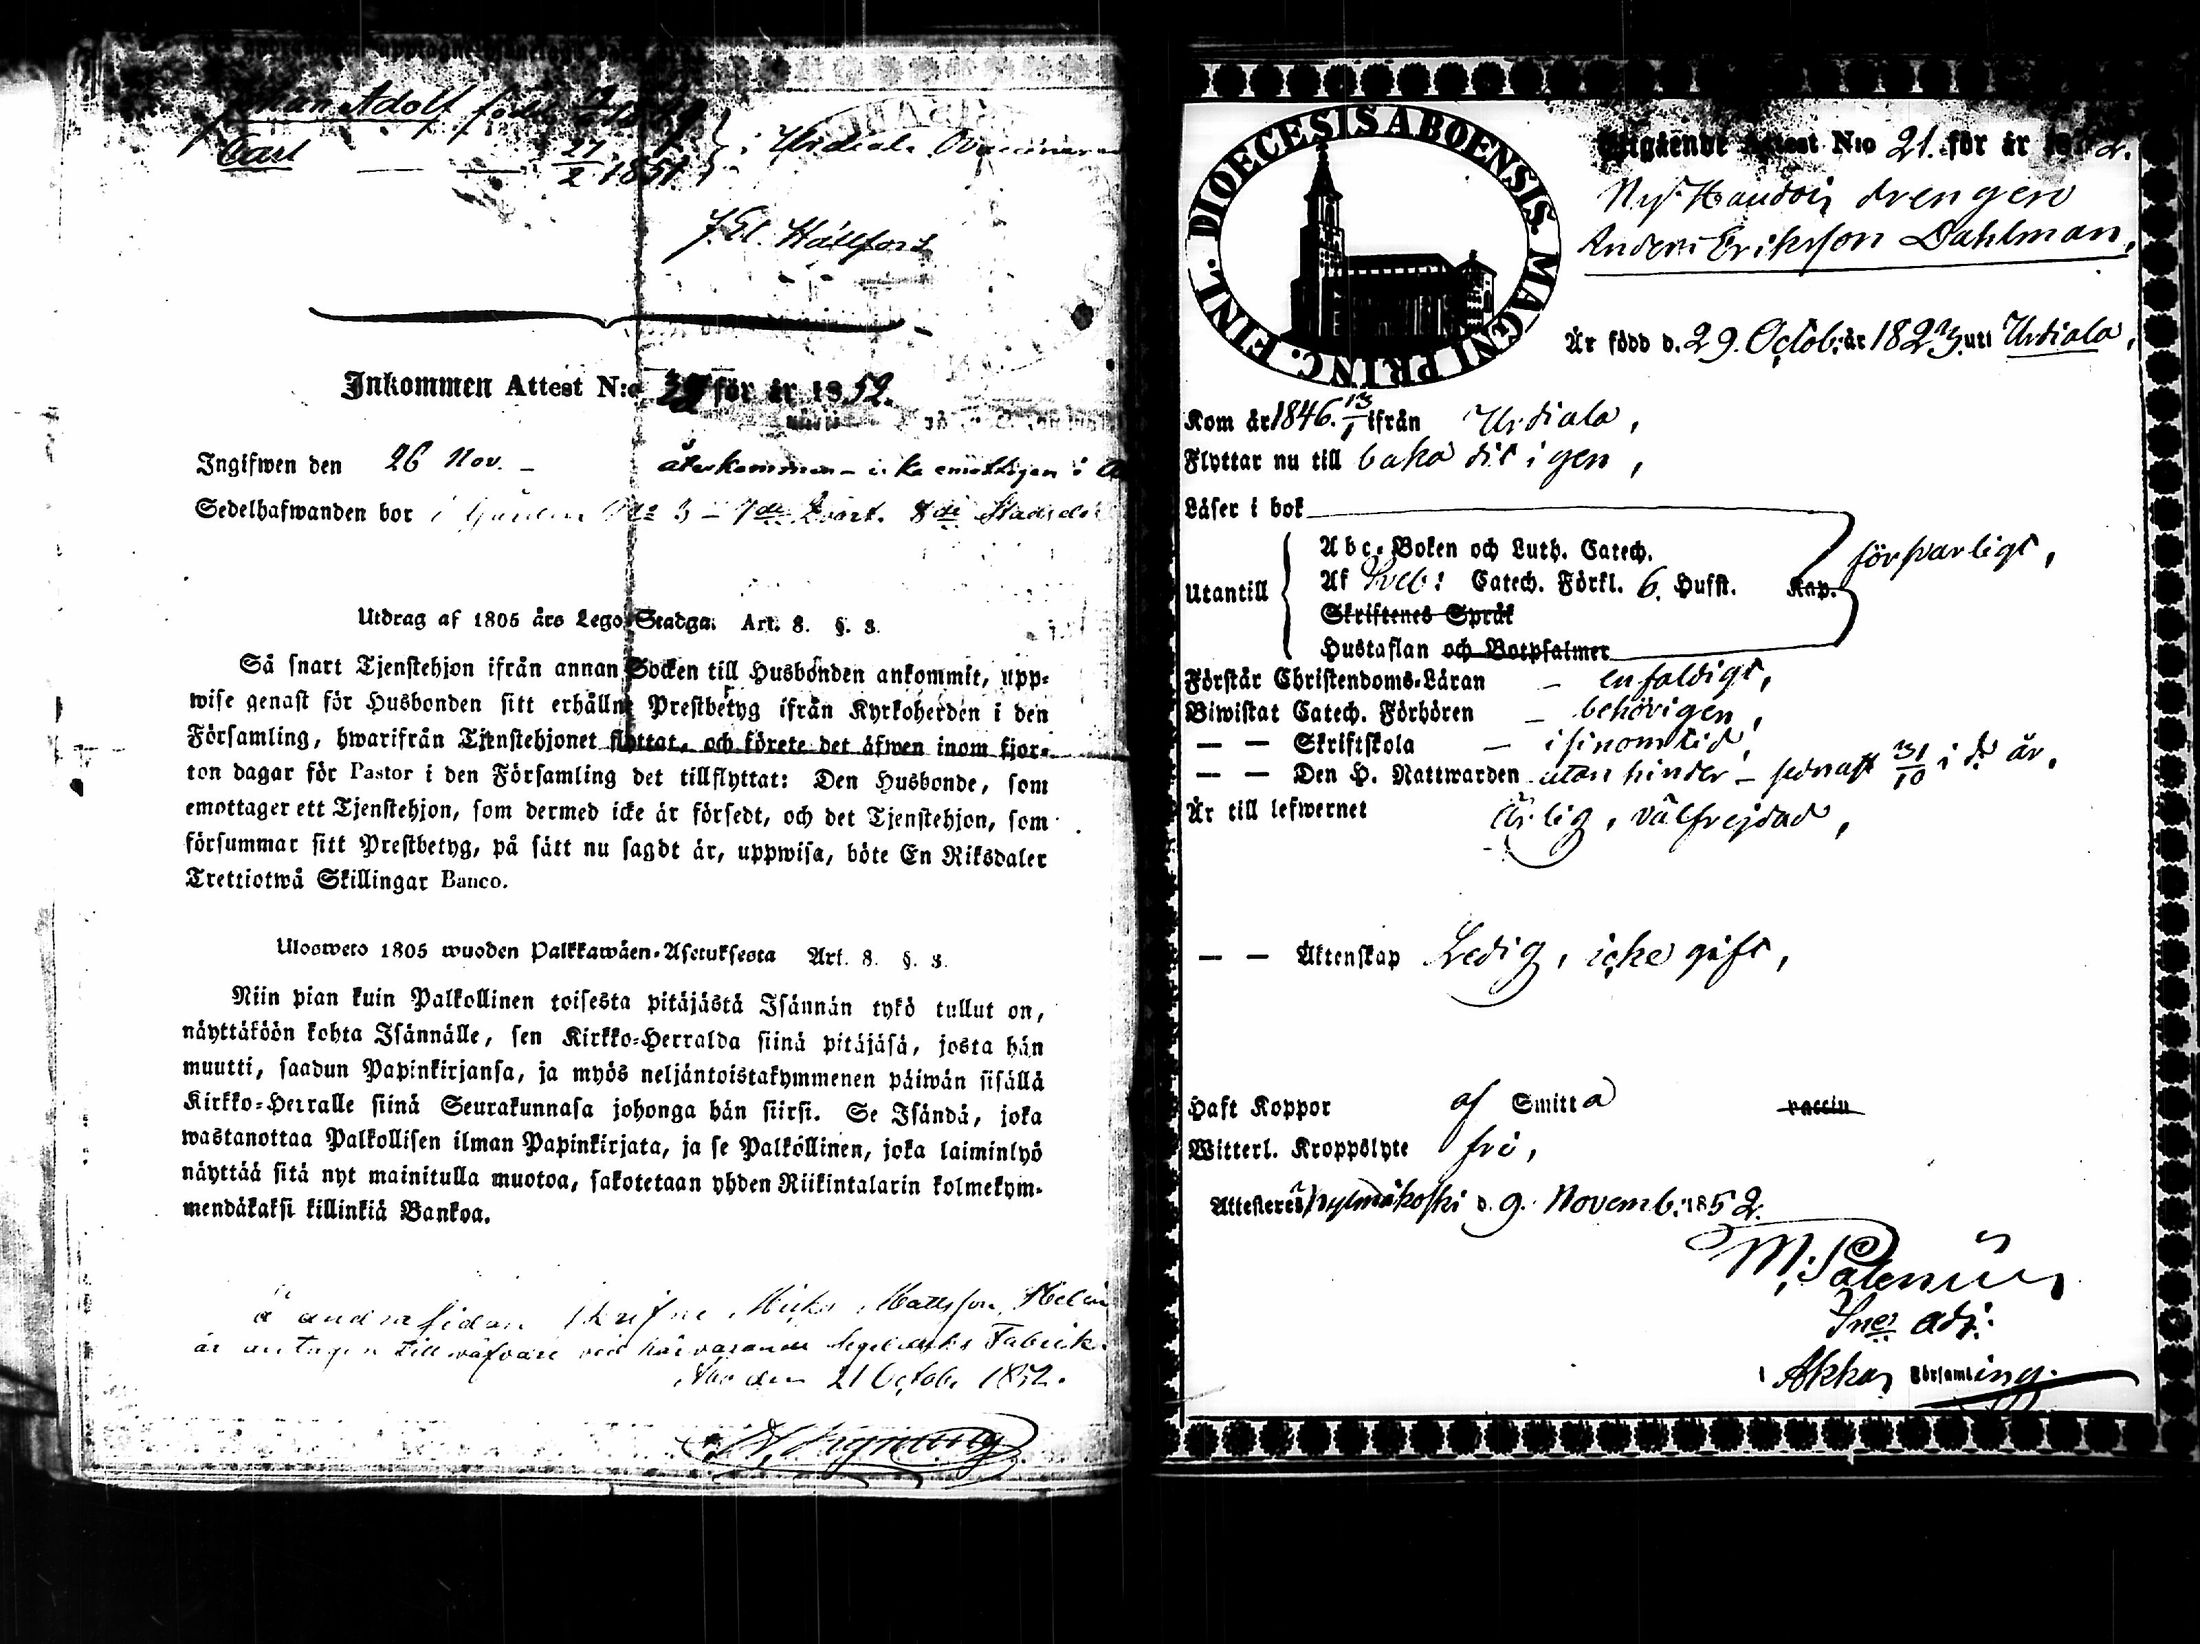 Johan Adolf född
Carl — — 27/2 1851. } i Urdiala
J. El. Hällfors
Inkommen Attest N:o 39 för år 1852.
Ingifwen den 26 Nov. – återkommen – i
Sedelhafwanden bor i Gården No 3 – 7de Qvart. 8de
Utdrag af 1805 års Lego-Stadga. Art. 8. §. 3.
Så snart Tjenstehjon ifrån annan Socken till Husbonden ankommit, upp-
wise genast för Husbonden sitt erhållne Prestbetyg ifrån Kyrkoherden i den
Församling, hwarifrån Tjenstehjonet flyttat, och förete det äfwen inom fjor-
ton dagar för Pastor i den Församling det tillflyttat: Den Husbonde, som
emottager ett Tjenstehjon, som dermed icke är försedt, och det Tjenstehjon, som
försummar sitt Prestbetyg, på sätt nu sagdt är, uppwisa, böte En Riksdaler
Trettiotwå Skillingar Banco.
Ulosweto 1805 wuoden Palkkawäen-Asetuksesta Art. 8. §. 3.
Niin pian kuin Palkollinen toisesta pitäjästä Isännän tykö tullut on,
näyttäköön kohta Isännälle, sen Kirkko-Herralda siinä pitäjäsä, josta hän
muutti, saadun Papinkirjansa, ja myös neljäntoistakymmenen päiwän sisällä
Kirkko-Herralle siinä Seurakunnasa johonga hän siirsi. Se Isändä, joka
wastanottaa Palkollisen ilman Papinkirjata, ja se Palkollinen, joka laiminlyö
näyttää sitä nyt mainitulla muotoa, sakotetaan yhden Riikintalarin kolmekym-
mendäkaksi killinkiä Bankoa.
å andra sidan skrifne Mattsson
är antagen till väfvare vid härvarande Fabrik.
Åbo den 21 October 1852.
FINL. DIOECESIS ABOENSIS MAGNI PRINC.
Utgående Attest N:o 21. för år 1852.
drengen
Anders Eriksson Dahlman,
Är född d. 29. Octob. år 1823. uti Urdiala,
Kom år 1846. 13/1 ifrån Urdiala,
Flyttar nu till baka dit igen,
Läser i bok
Abc-Boken och Luth. Catech.
Utantill { Af Sveb: Catech. Förkl. 6. Hufst. Kap. } försvarligt,
Skriftenes Språk
Hustaflan och Botpsalmer
Förstår Christendoms-Läran – enfaldigt,
Biwistat Catech. Förhören – behörigen,
— — Skriftskola – i sinom tid,
— — Den H. Nattwarden utan hinder – senast 31/10 i d. år.
Är till lefwernet Ärlig, välfrejdad,
— — Äktenskap Ledig, icke gift,
Haft Koppor af Smitta vaccin
Witterl. Kroppslyte fri,
Attesteres Kylmäkoski d. 9. Novemb. 1852.
M: Palenius
Sac. adj:
i Akkas Församling.